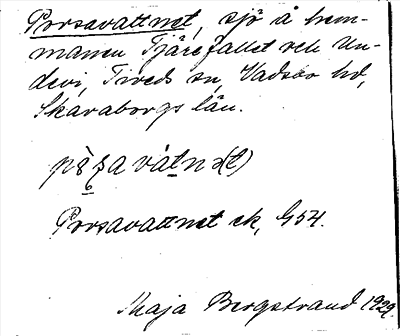 Porsavattnet, sjö å hem-
manen Tjärefallet och Un-
devi, Tiveds sn, Vadsbo hd,
Skaraborgs län.
Porsavattnet ek, G 54.
Maja Bergstrand 1929.